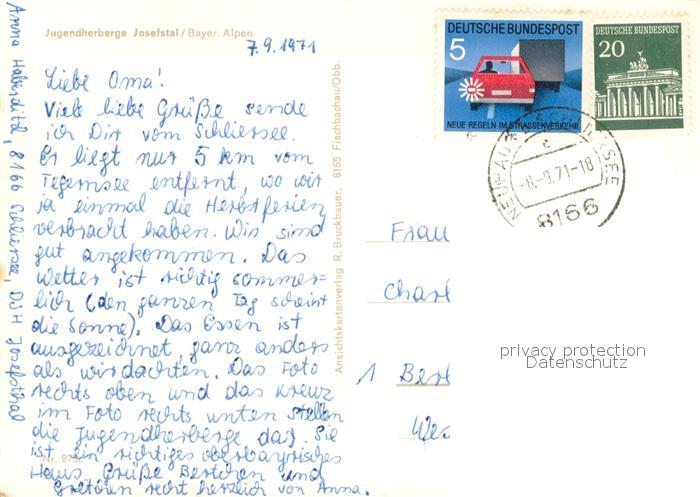 Jugendherberge Josefstal / Bayer. Alpen
7.9.1971
Liebe Oma!
Viele liebe Grüße sende
ich Dir vom Schliersee.
Er liegt nur 5 km vom
Tegernsee entfernt, wo wir
ja einmal die Herbstferien
verbracht haben. Wir sind
gut angekommen. Das
Wetter ist richtig sommer=
lich (den ganzen Tag scheint
die Sonne). Das Essen ist
ausgezeichnet, ganz anders
als wir dachten. Das Foto
rechts oben und das Kreuz
im Foto rechts unten stellen
die Jugendherberge dar. Sie
ist ein richtiges oberbayrisches
Haus. Grüße Bertchen und
Gretchen recht herzlich von Anna.
Nr. 9752
Anna 8166 Schliersee, DJH Josefsthal
Ansichtskartenverlag R. Bruckbauer, 8165 Fischbachau/Obb.
DEUTSCHE BUNDESPOST
5
NEUE REGELN IM STRASSENVERKEHR
DEUTSCHE BUNDESPOST
20
-8.-9.71-18
8166
Frau
Charl
1 Berl
Wes
privacy protection
Datenschutz